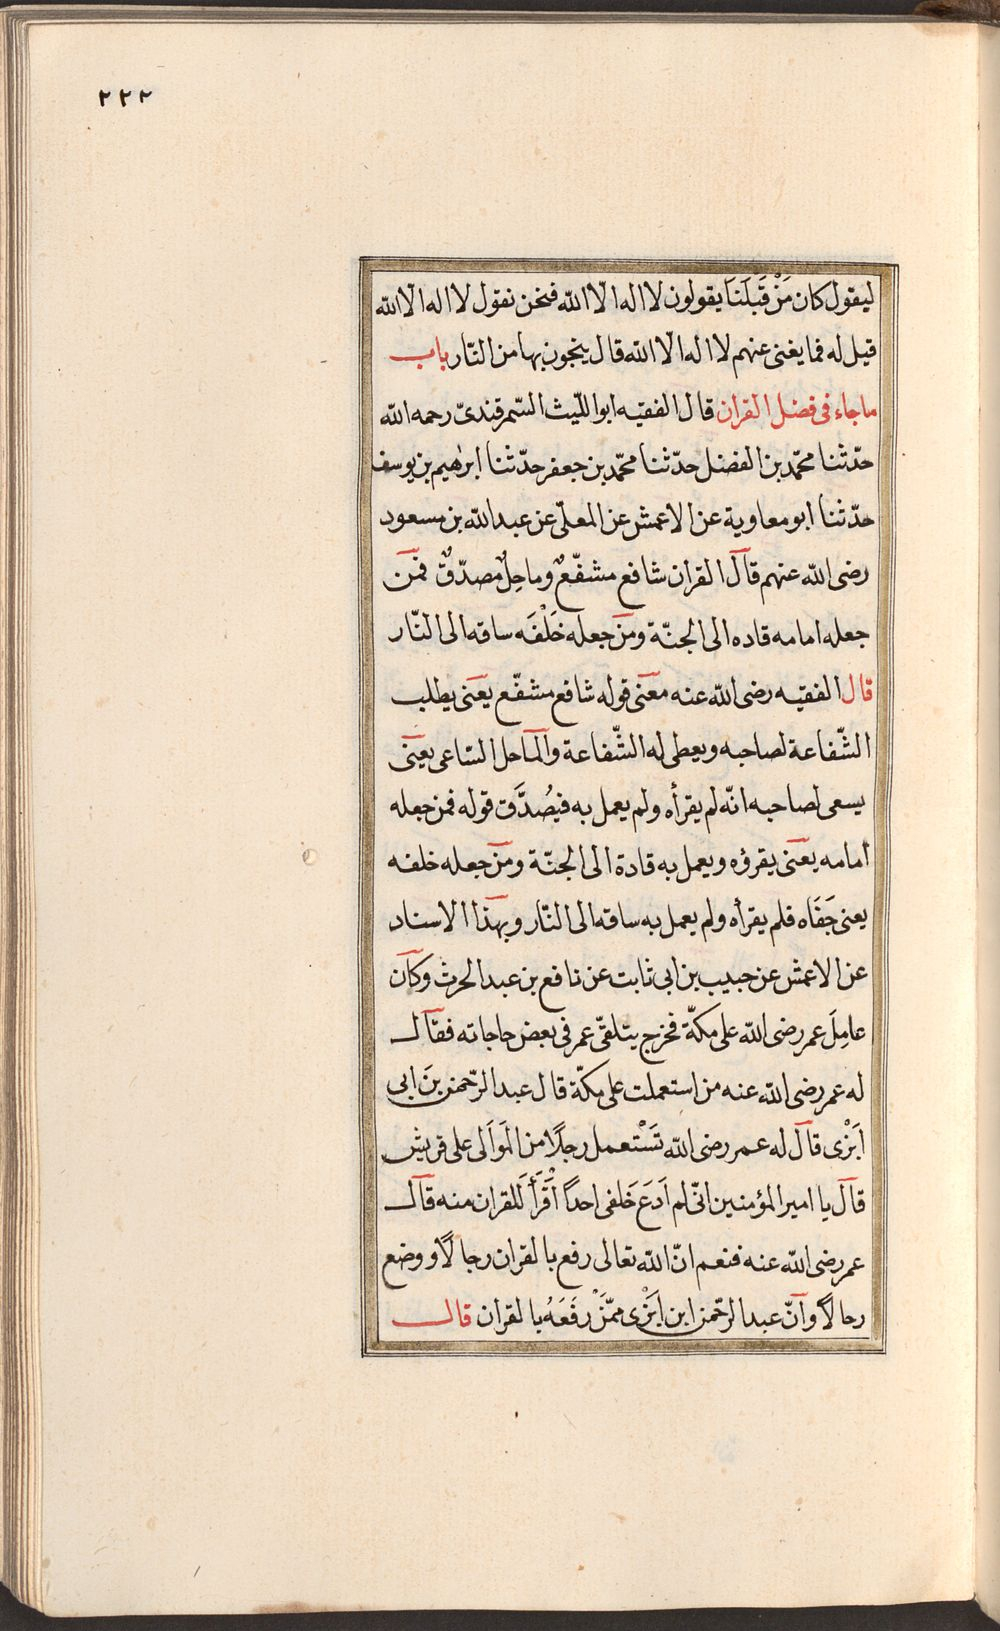 ٢٢٢
ليقول كان مَنْ قَبْلَنَا يقولون لا اله الا الله فنحن نقول لا اله الا الله
قيل له فما يغنى عنهم لا اله الّا الله قال ينجون بها من النّار باب
ما جاء فى فضل القران قال الفقيه ابو اللّيث السّمرقندىّ رحمه الله
حدّثنا محمّد بن الفضل حدّثنا محمّد بن جعفر حدّثنا ابرهيم بن يوسف
حدّثنا ابو معاوية عن الاعمش عن المعلّى عن عبد الله بن مسعود
رضى الله عنهم قال القران شافع مشفّعٌ وماحِلٌ مصدّقٌ فمن
جعله امامه قاده الى الجنّة ومن جعله خَلْفَه ساقه الى النّار
قال الفقيه رضى الله عنه معنى قوله شافع مشفّع يعنى يطلب
الشّفاعة لصاحبه ويعطى له الشّفاعة والماحل السّاعى يعنى
يسعى لصاحبه انّه لم يقرأه ولم يعمل به فيُصدَّق قوله فمن جعله
امامه يعنى يقرؤه ويعمل به قادة الى الجنّة ومن جعله خلفه
يعنى جَفَاه فلم يقرأه ولم يعمل به ساقه الى النّار وبهذا الاسناد
عن الاعمش عن حبيب بن ابى ثابت عن نافع بن عبد الحرث وكان
عامِلَ عمر رضى الله على مكّة فخرج يتلقّى عمر فى بعض حاجاته فقال
له عمر رضى الله عنه من استعملت على مكّة قال عبد الرّحمن بنَ ابى
اَبْزٰى قال له عمر رضى الله تَسْتعمل رجلًا من المَوَالى على قريش
قال يا امير المؤمنين انّى لم اَدَعَ خَلفى احدًا اَقْرَأَ للقران منه قال
عمر رضى الله عنه فنعم انّ الله تعالى رفع بالقران رجالًا ووضع
رجالًا وانّ عبد الرّحمن ابن اَبْزٰى ممّنْ رَفَعَهُ بالقران قال